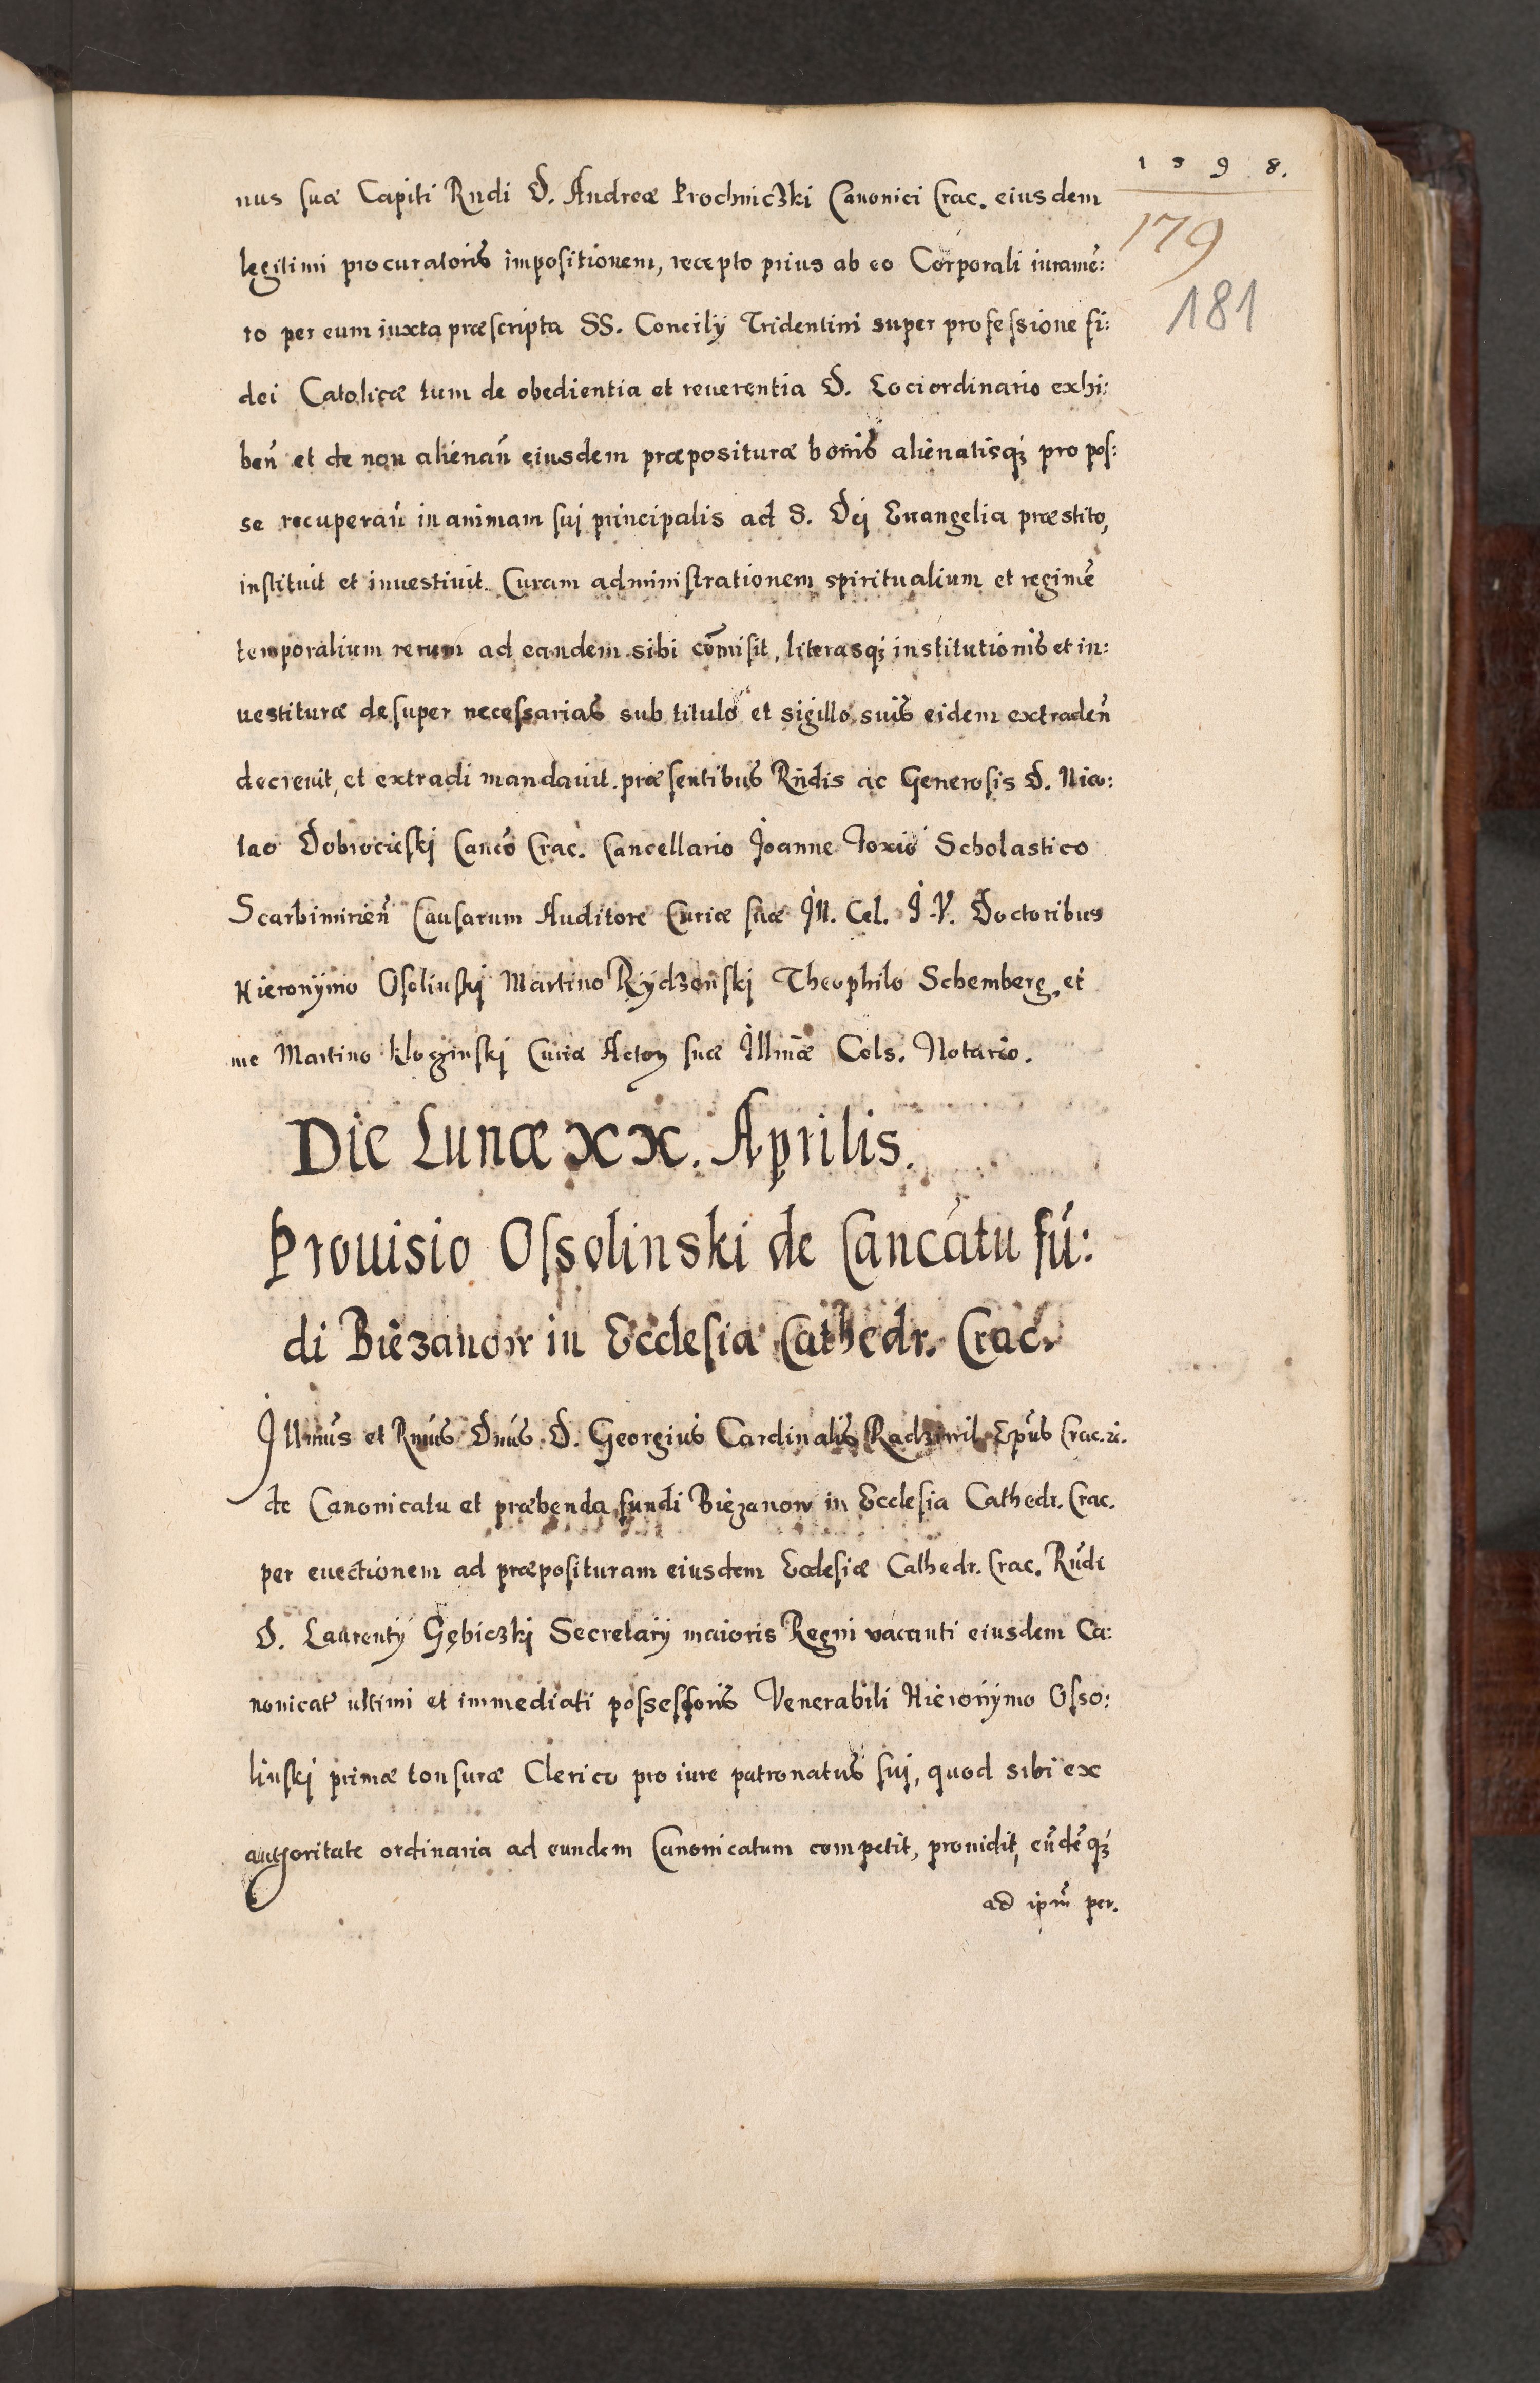 1598.
179
181
nus suæ Capiti Rndi D. Andreæ Prochniczki Canonici Crac. eiusdem
legitimi procuratoris impositionem, recepto prius ab eo Corporali iuramē:
to per eum iuxta præscripta SS. Concilÿ Tridentini super professione fi:
dei Catolicæ tum de obedientia et reuerentia D. Loci ordinario exhi:
ben̄ et de non alienan̄ eiusdem præposituræ bonis alienatisq; pro pos:
se recuperan̄ in animam sui principalis ad S. Dei Euangelia præstito,
instituit et inuestiuit. Curam administrationem spiritualium et regimē
temporalium rerum ad eandem sibi cōmisit, literasq; institutionis et in:
uestituræ desuper necessarias sub titulo et sigillo suis eidem extraden̄
decreuit, et extradi mandauit. præsentibus Rn̄dis ac Generosis D. Nico:
lao Dobrocieski Canco Crac. Cancellario Joanne Foxio Scholastico
Scarbimirien̄ Causarum Auditore Curiæ suæ Ill. Cel. J. V. Doctoribus
Hieronÿmo Osolinski Martino Rÿdzenski Theophilo Schemberg, et
me Martino Kloginski Curiæ Actoꝝ suæ Illmæ Cels. Notario.
Die Lunæ XX. Aprilis.
Prouisio Ossolinski de Cancatu fū:
di Biezanow in Ecclesia Cathedr. Crac.
Illmus et Rmus Dnus D. Georgius Cardinalis Radziwil Epus Crac. &.
de Canonicatu et præbenda fundi Biezanow in Ecclesia Cathedr. Crac.
per euectionem ad præposituram eiusdem Ecclesiæ Cathedr. Crac. Rndi
D. Laurentÿ Gębiczki Secretarÿ maioris Regni vacanti eiusdem Ca:
nonicat9 ultimi et immediati possessoris Venerabili Hieronÿmo Osso:
linski primæ tonsuræ Clerico pro iure patronatus sui, quod sibi ex
authoritate ordinaria ad eundem Canonicatum competit, prouidit, eūdēq;
ad ipm̄ per.